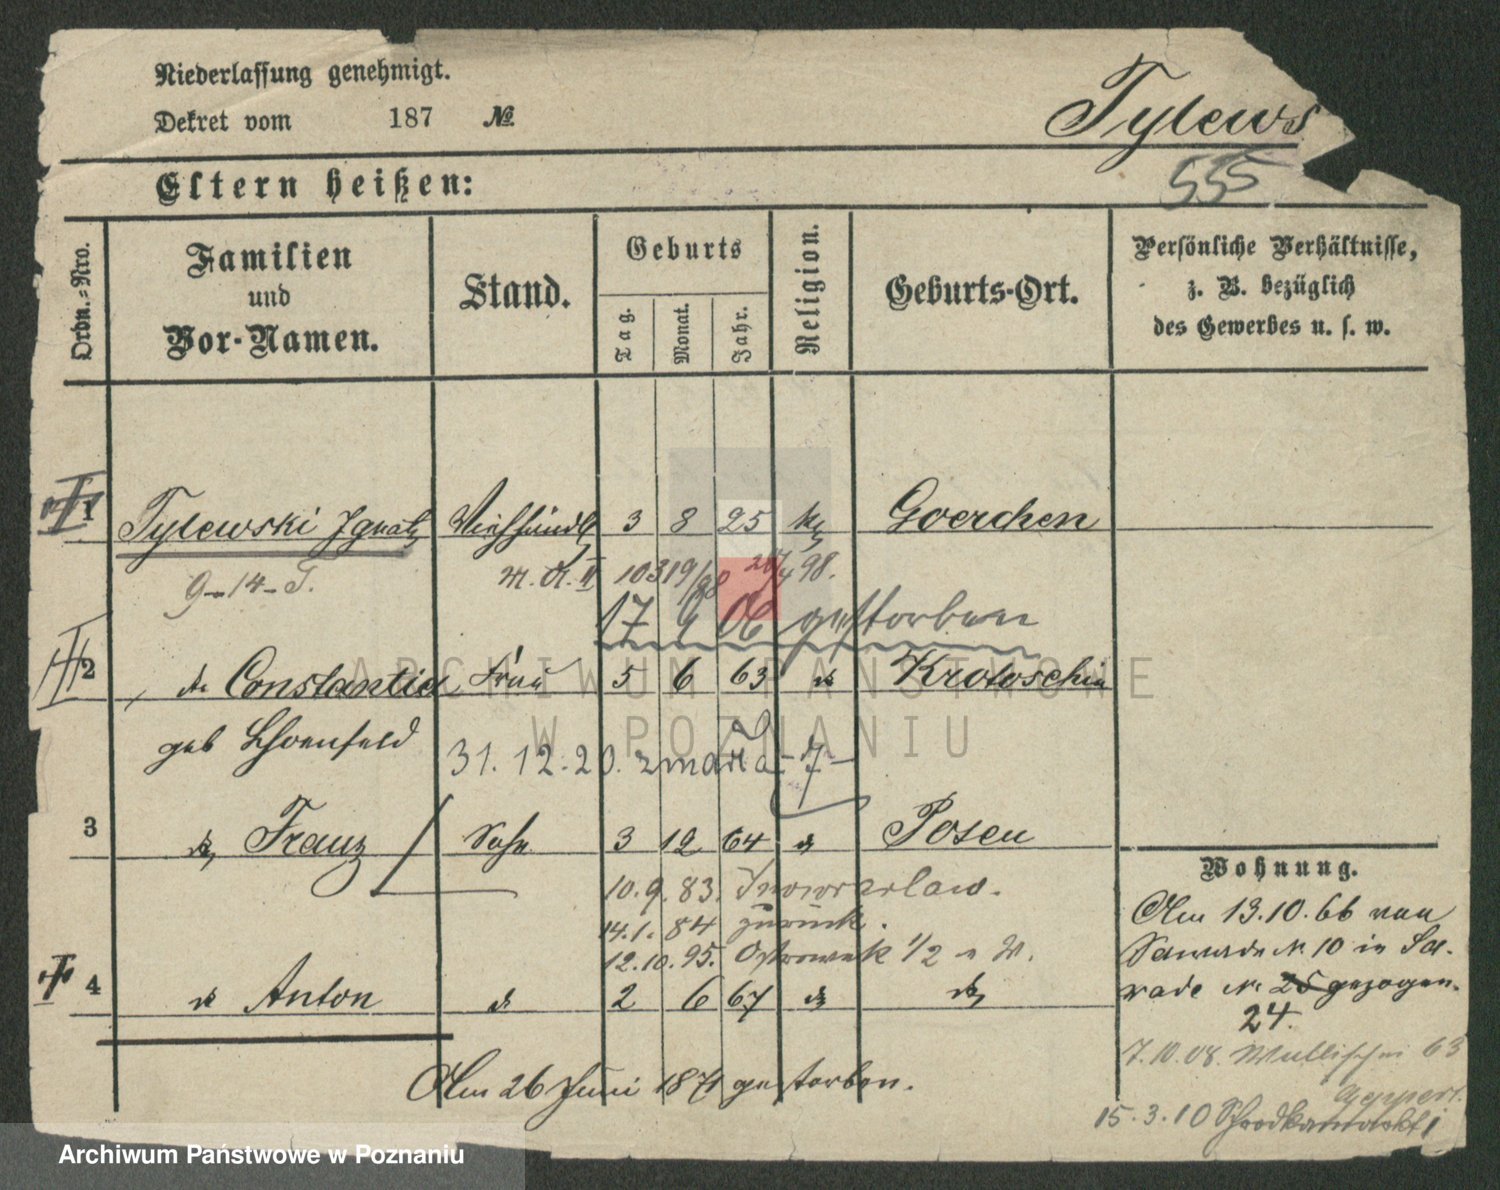 Niederlassung genehmigt.
Dekret vom 187 №.
Tylews
555
Eltern heißen:
Ordn.-Nro.
Familien und Vor-Namen.
Stand.
Geburts
Tag.
Monat.
Jahr.
Religion.
Geburts-Ort.
Persönliche Verhältnisse,
z. B. bezüglich
des Gewerbes u. s. w.
1 Tylewski Ignatz Viehhändl 3 8 25 Goerchen
9-14-T. 10319/98 98.
17 9 06 gestorben
2 Constantia Frau 5 6 63 Krotoschin
geb Schoenfeld
31.12.20. zmarła
3 Franz Sohn 3 12 64 Posen
10.9.83. Inowrazlaw.
14.1.84 zurück.
12.10.95. Ostrowek 1/2
4 Anton 2 6 67
Am 26 Juni 1871 gestorben.
Wohnung.
Am 13.10.66 von
Sawade N. 10 in Sa-
wade N. 25 gezogen.
24.
7.10.08. Wallischei 63
15.3.10 Schrodkamarkt 1
ARCHIWUM PAŃSTWOWE
W POZNANIU
Archiwum Państwowe w Poznaniu